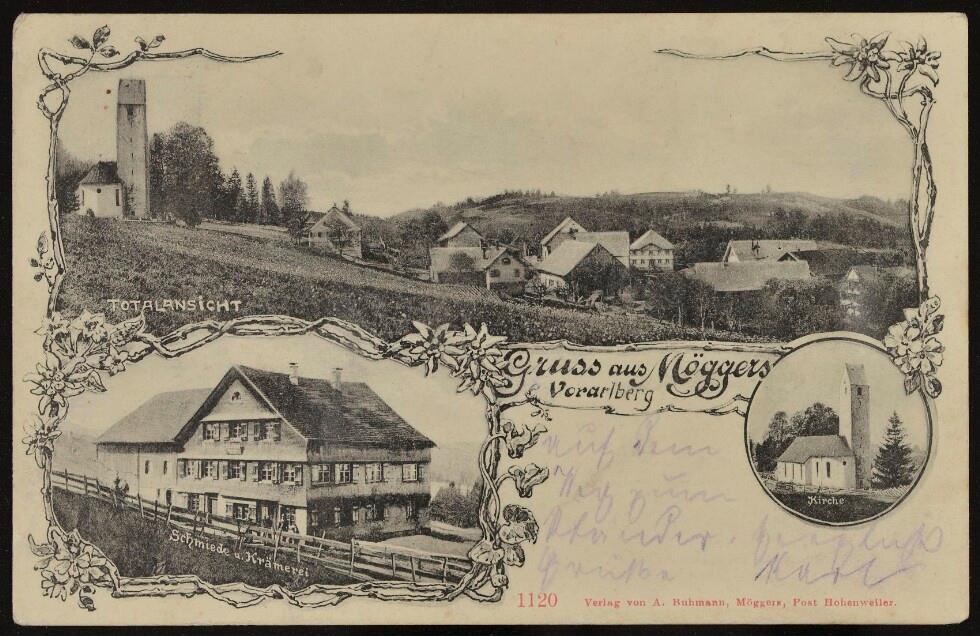 TOTALANSICHT
Gruss aus Möggers
Vorarlberg
Kirche
Schmiede u. Krämerei
Auf dem
Weg zum
Pfänder. herzliche
Grüße Karl
1120 Verlag von A. Buhmann, Möggers, Post Hohenweiler.